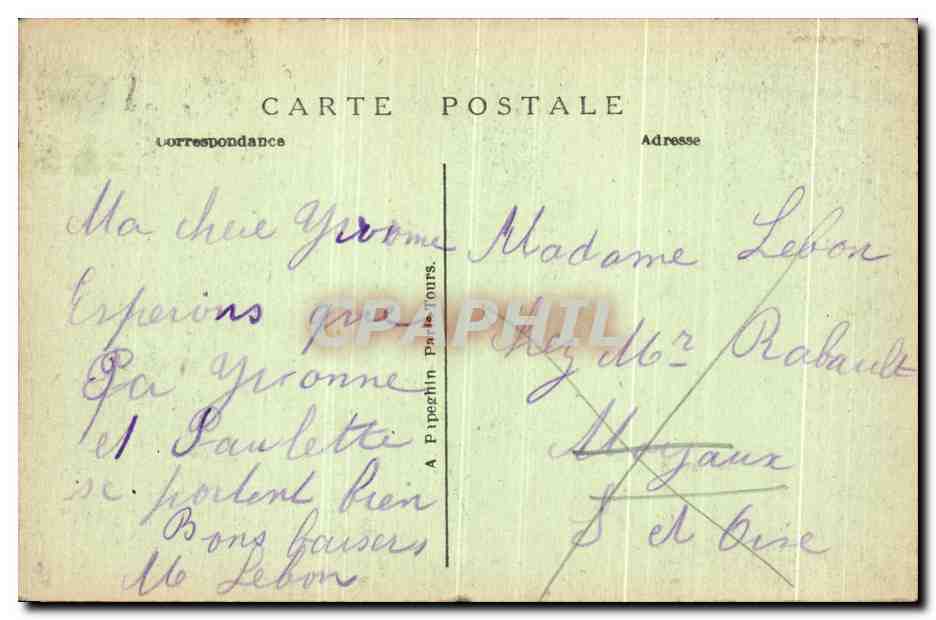 CARTE POSTALE
Correspondance
Adresse
Ma cheie Yvonne
Esperons que
Pa Yvonne
et Paulette
se portent bien
Bons baisers
M Lebon
A Papeghin Paris-Tours.
CPAPHIL
Madame Lebon
Chez Mr Rabault
S et Oise